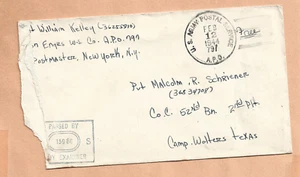 Pvt William Kelley (36255590)
Engrs Co. A.P.O. 797
Postmaster, New York, N.Y.
U.S. ARMY POSTAL SERVICE
FEB
12
1944
797
A.P.O.
Free
Pvt Malcolm R. Schriener
Co. C. 52nd Bn 2nd Plt
Camp. Wolters Texas
PASSED BY
S
ARMY EXAMINER